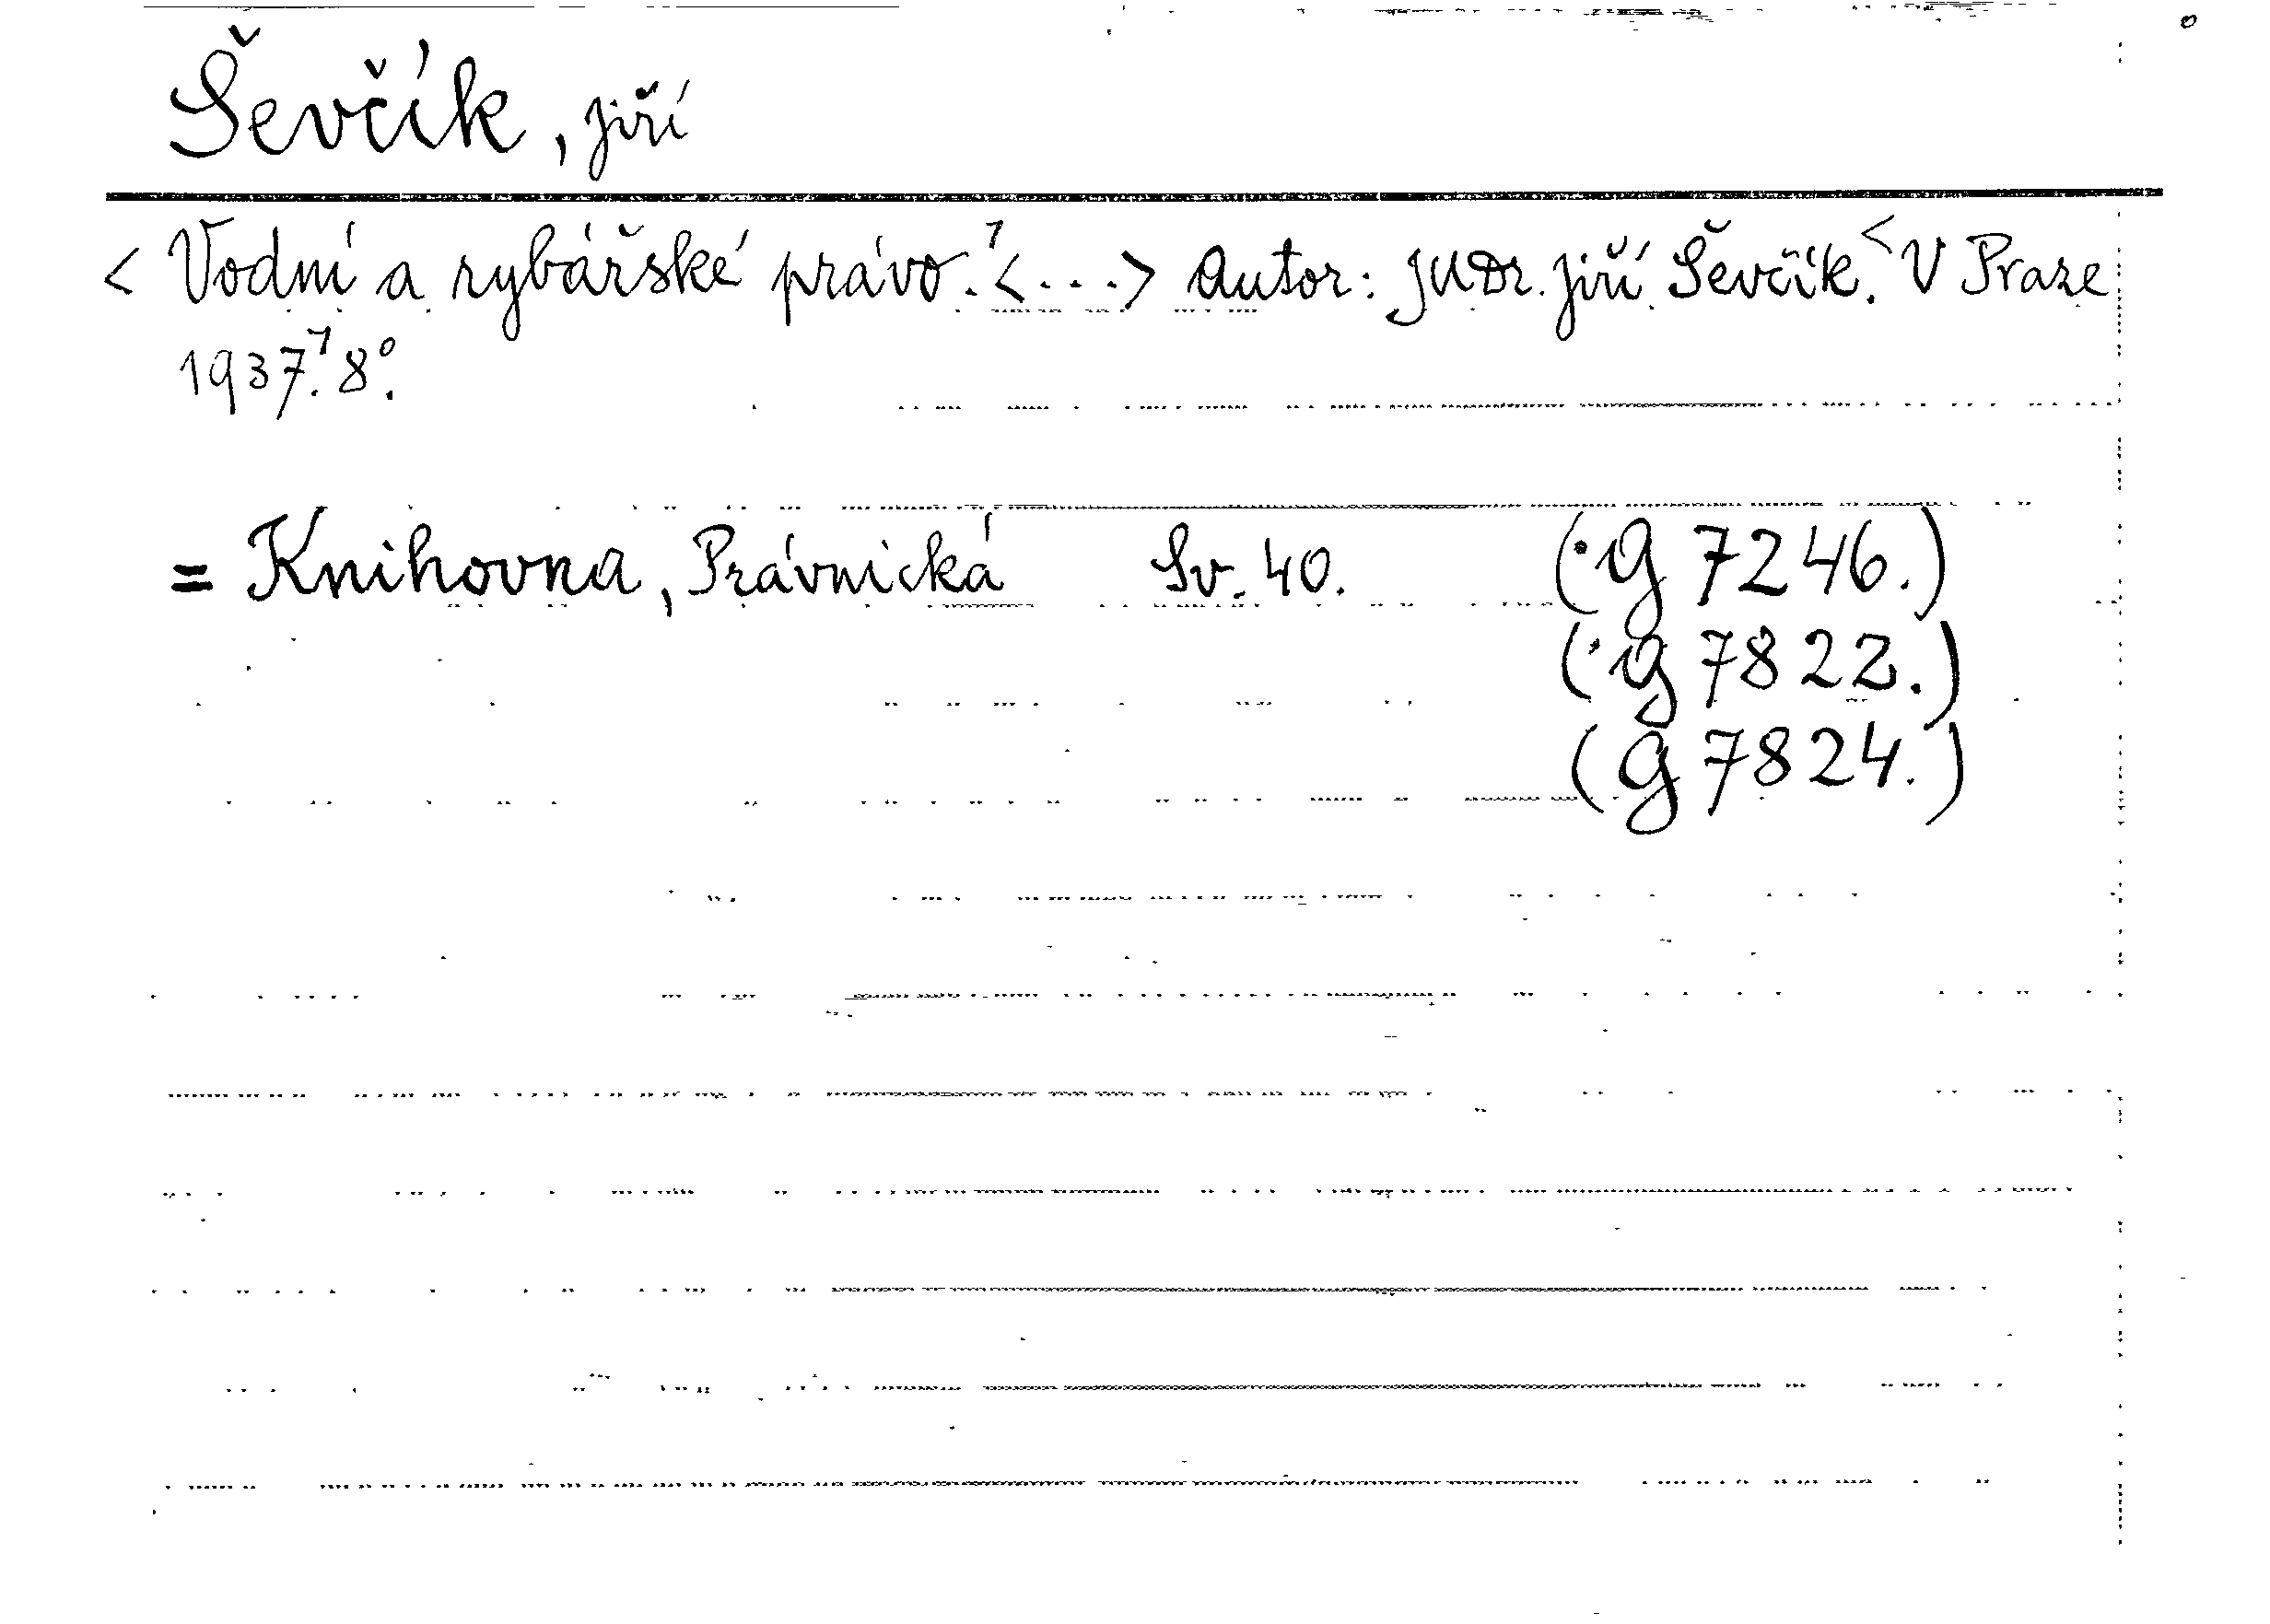 Ševčík, Jiří
< Vodní a rybářské právo.⁊ <...> Autor: JUDr. Jiří Ševčík. < V Praze
1937.⁊ 8°.
= Knihovna, Právnická Sv. 40. (·G 7246.)
(·G 7822.)
(G 7824.)